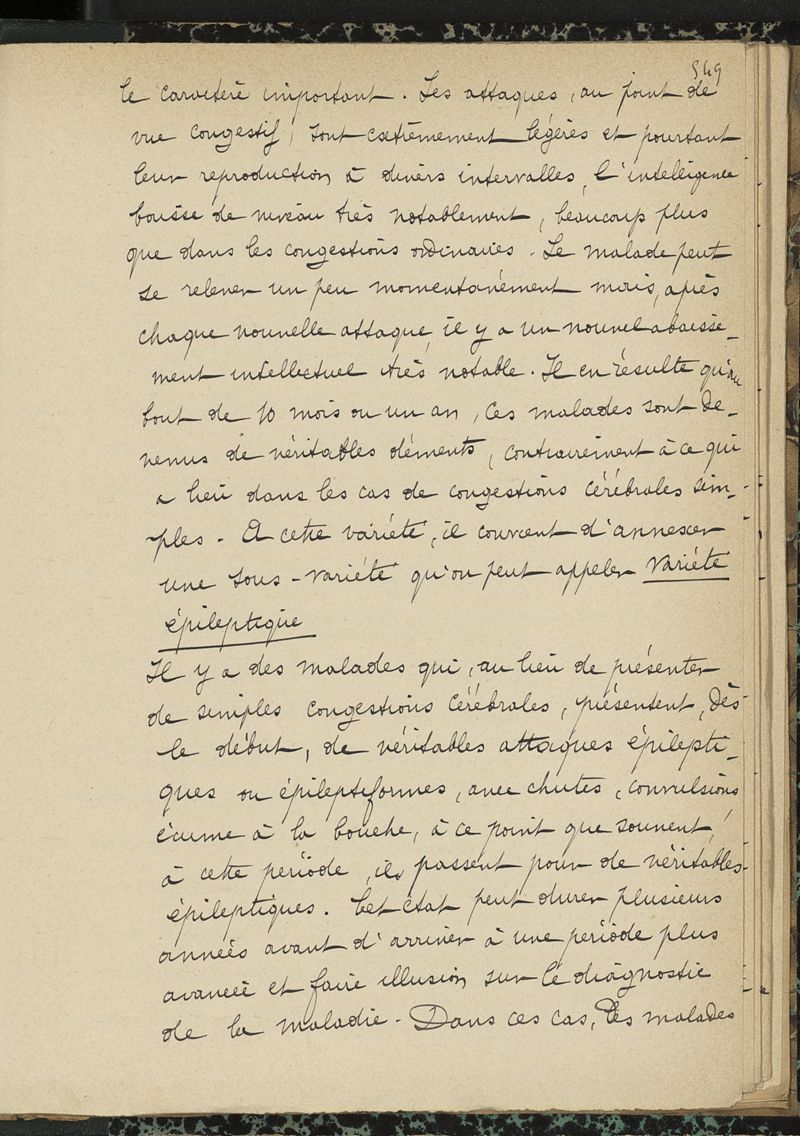 349
le caractère important. Les attaques, au point de
vue congestif, sont extrêmement légères et pourtant
leur reproduction à divers intervalles, l'intelligence
baisse de niveau très notablement, beaucoup plus
que dans les congestions ordinaires. Le malade peut
se relever un peu momentanément mais, après
chaque nouvelle attaque, il y a un nouvel abaisse-
ment intellectuel très notable. Il en résulte qu'au
bout de 10 mois ou un an, ces malades sont de-
venus de véritables déments, contrairement à ce qui
a lieu dans les cas de congestions cérébrales sim-
ples. A cette variété, il convient d'annexer
une sous-variété qu'on peut appeler variété
épileptique
Il y a des malades qui, au lieu de présenter
de simples congestions cérébrales, présentent, dès
le début, de véritables attaques épilepti-
ques ou épileptiformes, avec chutes, convulsions
écume à la bouche, à ce point que souvent,
à cette période, ils passent pour de véritables
épileptiques. Cet état peut durer plusieurs
années avant d'arriver à une période plus
avancée et faire illusion sur le diagnostic
de la maladie. Dans ces cas, les malades